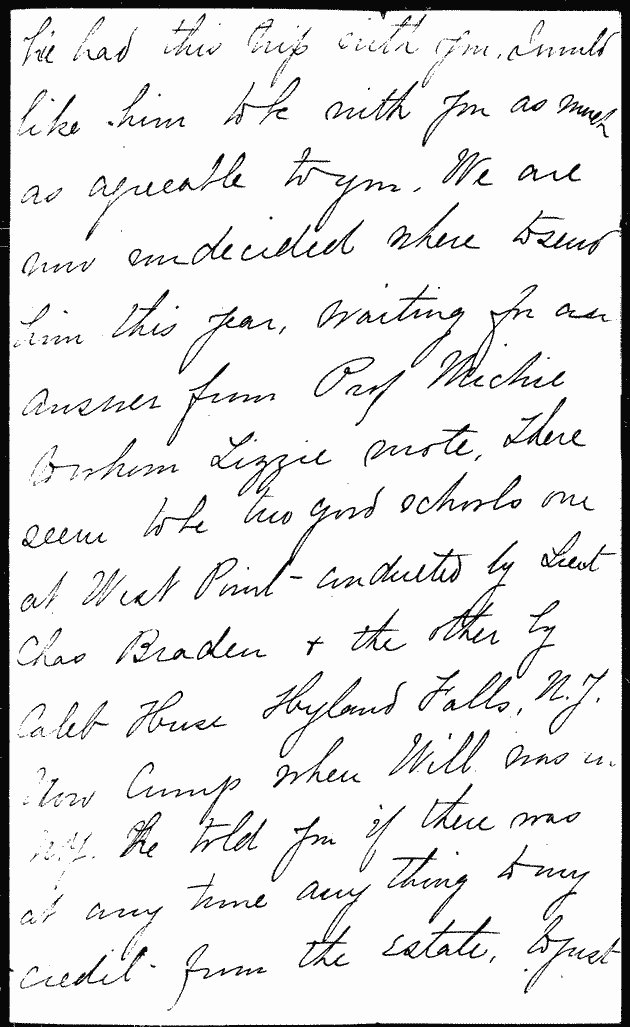 he had this trip with you. I would
like him to be with you as much
as agreeable to you. We are
now undecided where to send
him this year, waiting for an
answer from Prof Michie
to whom Lizzie wrote. There
seem to be two good schools one
at West Point - conducted by Lieut
Chas Braden + the other by
Caleb Huse Hyland Falls, N.Y.
Now Cump when Will was in
N.Y. he told you if there was
at any time any thing to my
credit from the Estate, to just